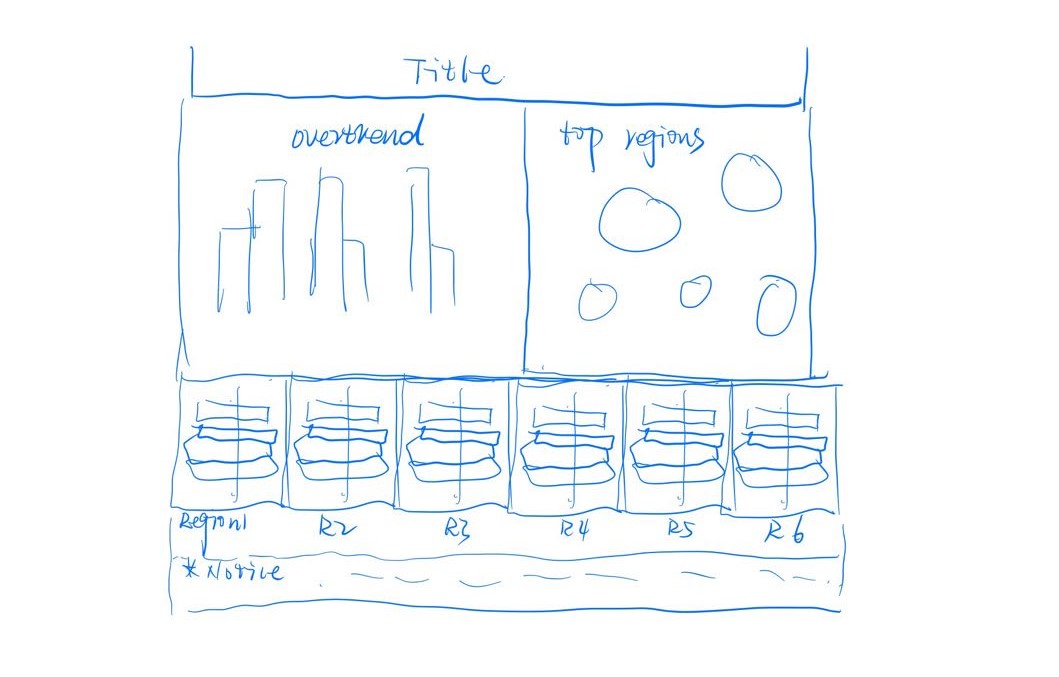 Title
overtrend
top regions
Region1 R2 R3 R4 R5 R6
* Notice